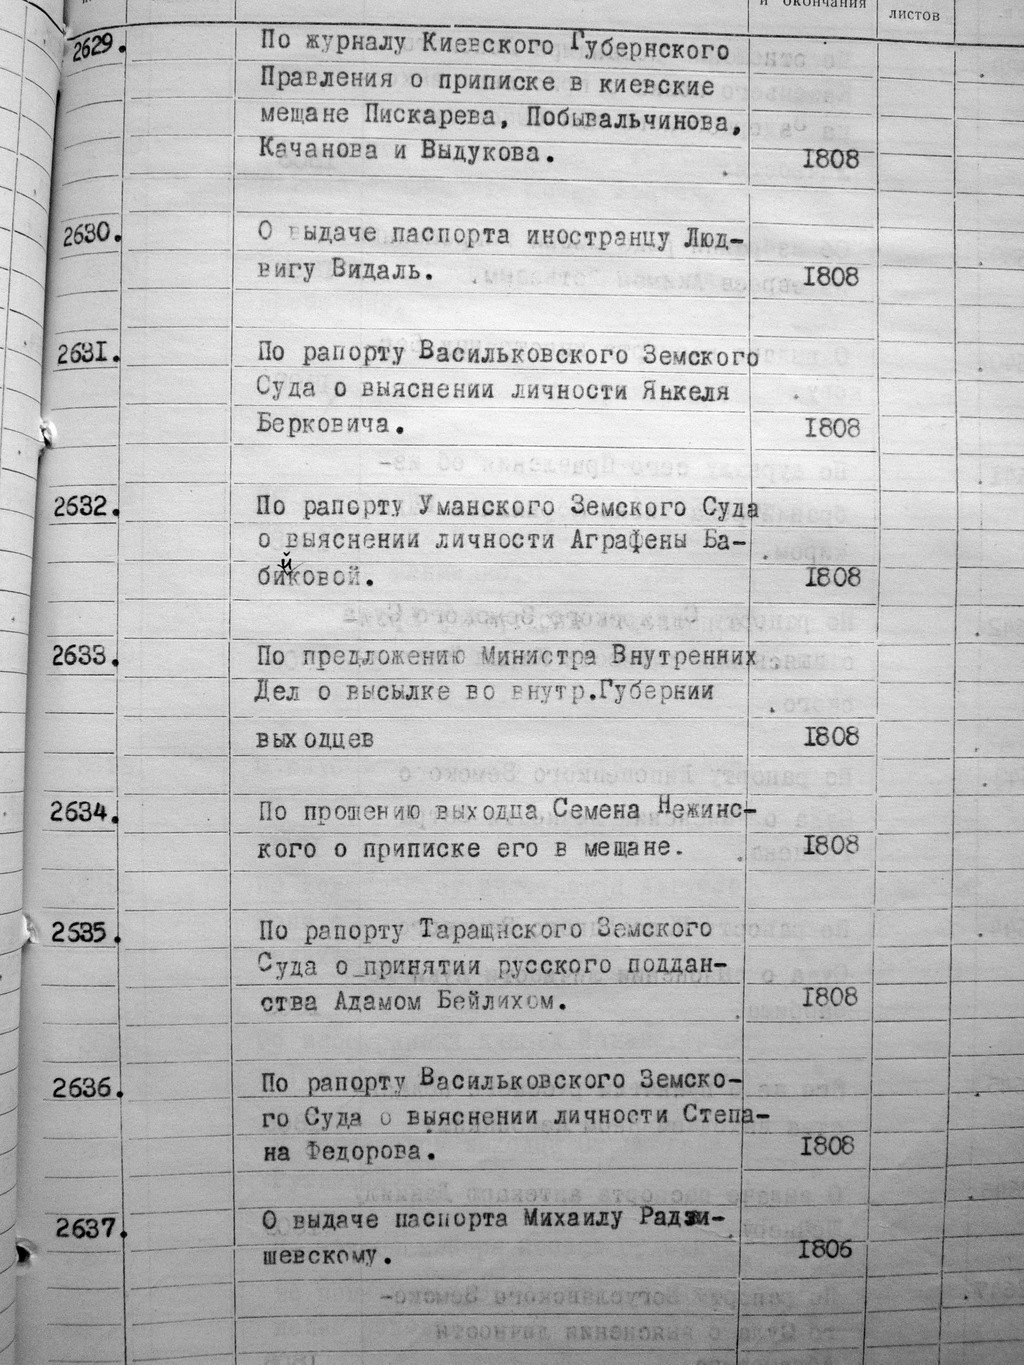 и окончания
листов
2629.
По журналу Киевского Губернского
Правления о приписке в киевские
мещане Пискарева, Побывальчинова,
Качанова и Выдукова.
1808
2630.
О выдаче паспорта иностранцу Люд-
вигу Видаль.
1808
2631.
По рапорту Васильковского Земского
Суда о выяснении личности Янкеля
Берковича.
1808
2632.
По рапорту Уманского Земского Суда
о выяснении личности Аграфены Ба-
биковой.
й
1808
2633.
По предложению Министра Внутренних
Дел о высылке во внутр.Губернии
выходцев
1808
2634.
По прошению выходца Семена Нежинс-
кого о приписке его в мещане.
1808
2635.
По рапорту Таращнского Земского
Суда о принятии русского поддан-
ства Адамом Бейлихом.
1808
2636.
По рапорту Васильковского Земско-
го Суда о выяснении личности Степа-
на Федорова.
1808
2637.
О выдаче паспорта Михаилу Радзи-
шевскому.
1806